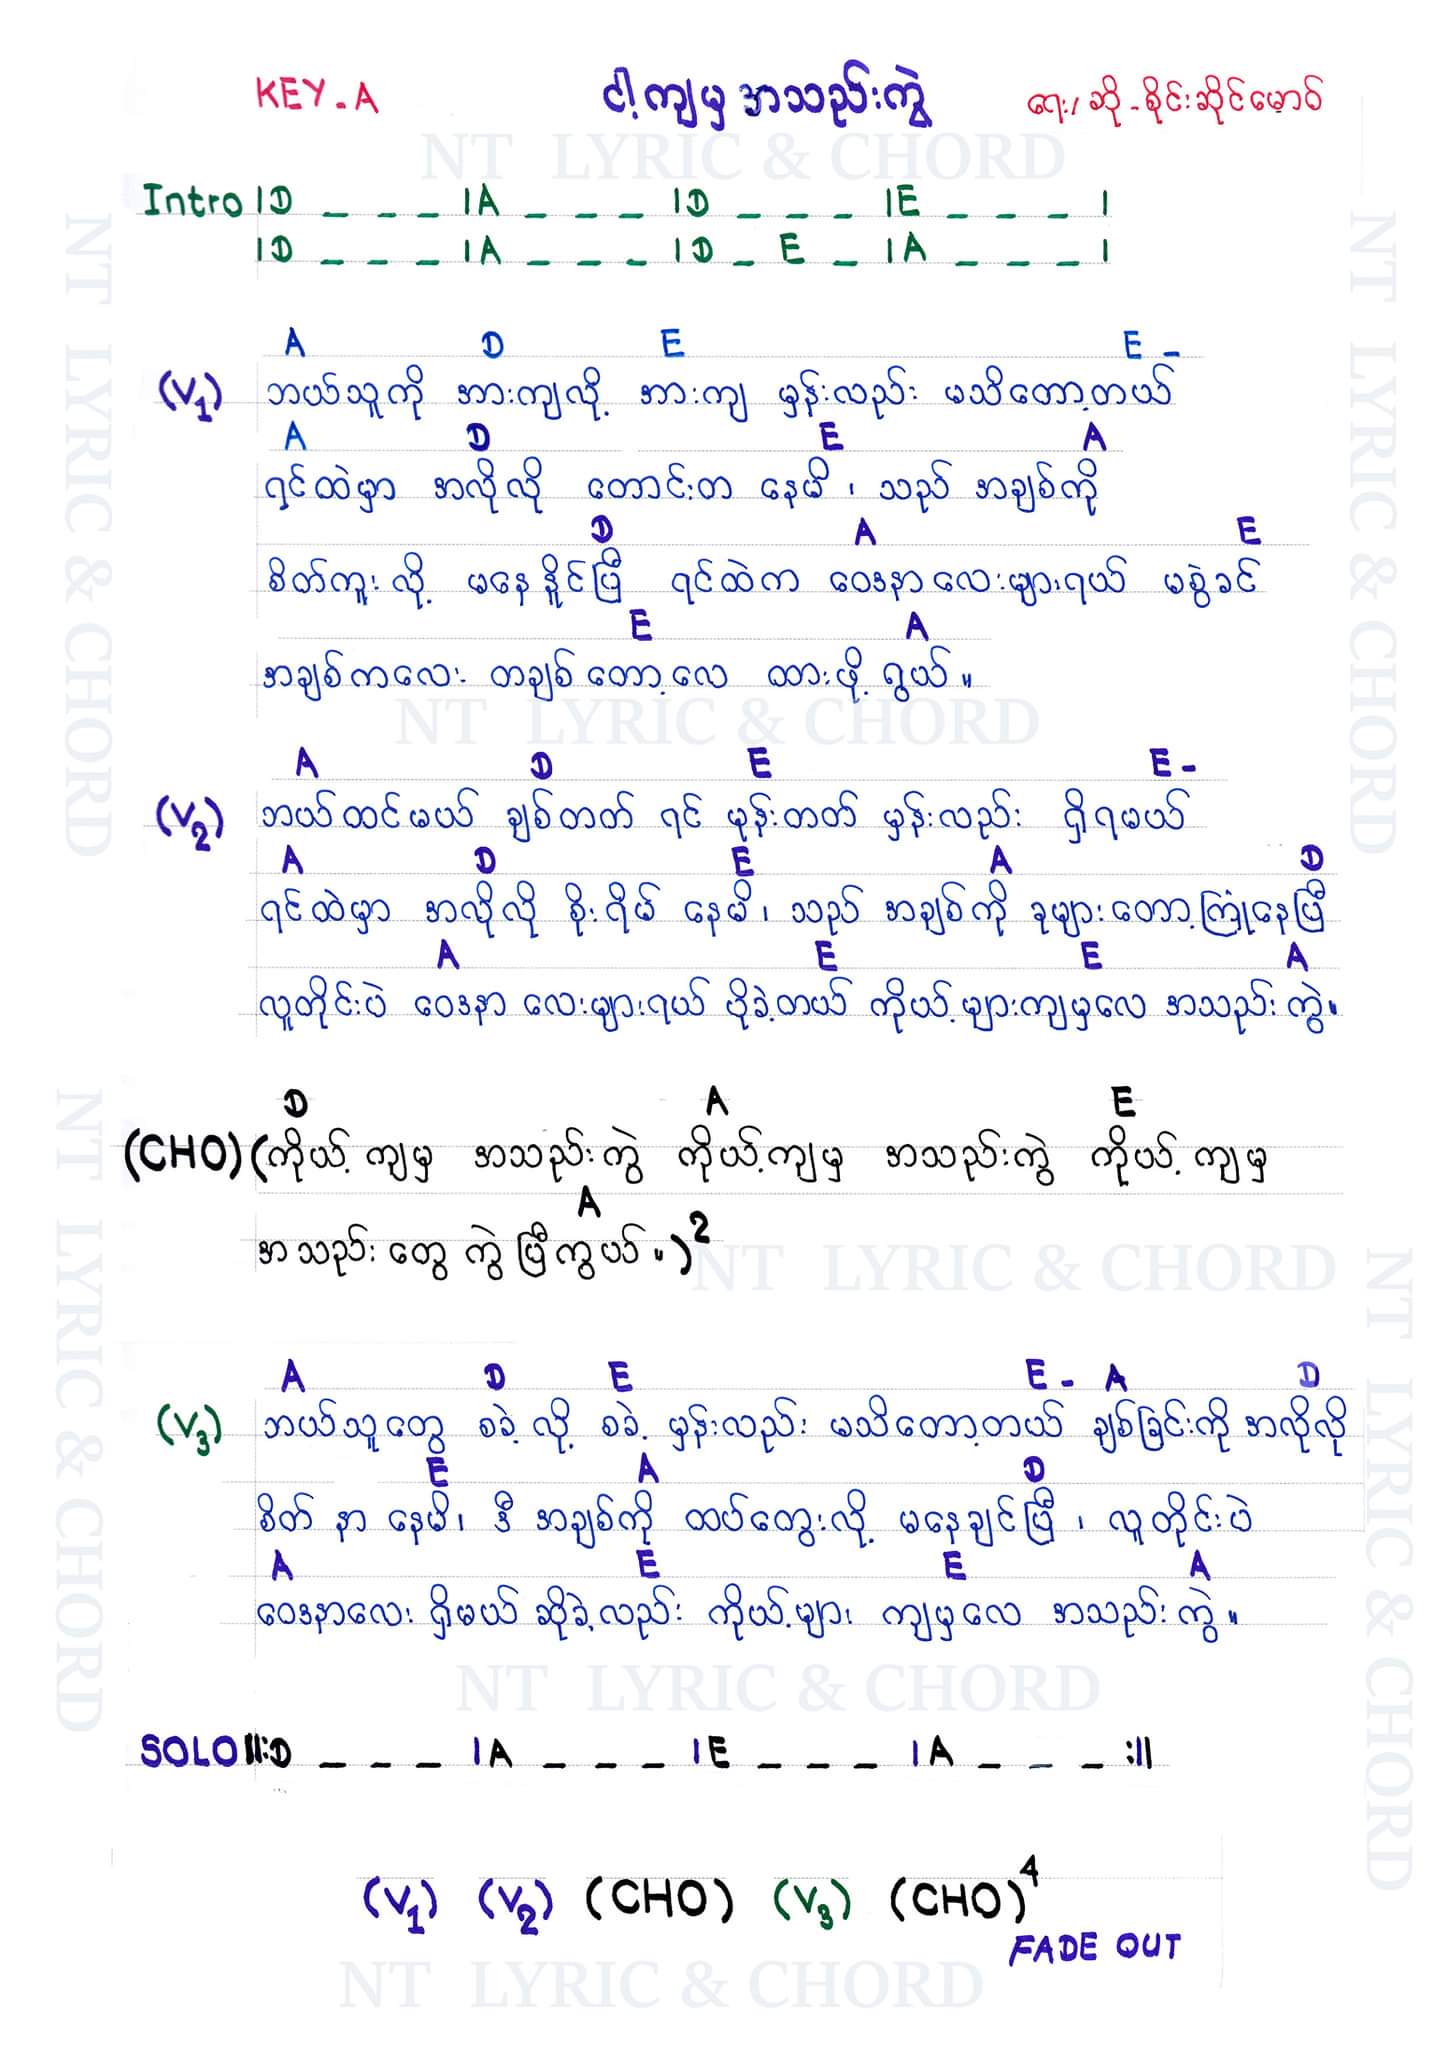 KEY - A ငါ့ကျမှ အသည်းကွဲ ရေး/ဆို - စိုင်းဆိုင်မောဝ်
NT LYRIC & CHORD
Intro |D _ _ _ |A _ _ _ |D _ _ _ |E _ _ _ |
|D _ _ _ |A _ _ _ |D _ E _ |A _ _ _ |
A D E E -
(V1) ဘယ်သူကို အားကျလို့ အားကျ မှန်းလည်း မသိတော့တယ်
A D E A
ရင်ထဲမှာ အလိုလို တောင်းတ နေမိ ၊ သည် အချစ်ကို
D A E
စိတ်ကူးလို့ မနေနိုင်ပြီ ရင်ထဲက ဝေဒနာလေးများရယ် မစွဲခင်
E A
အချစ်ကလေး တချစ်တော့လေ ထားဖို့ ရွယ်။
NT LYRIC & CHORD
A D E E -
(V2) ဘယ်ထင်မယ် ချစ်တတ် ရင် မုန်းတတ် မှန်းလည်း ရှိရမယ်
A D E A D
ရင်ထဲမှာ အလိုလို စိုးရိမ် နေမိ၊ သည် အချစ်ကို ခုများတော့ကြုံနေပြီ
A E E A
လူတိုင်းပဲ ဝေဒနာ လေးများရယ် ပိုခဲ့တယ် ကိုယ့်များကျမှလေ အသည်းကွဲ။
D A E
(CHO) (ကိုယ့် ကျမှ အသည်းကွဲ ကိုယ့်ကျမှ အသည်းကွဲ ကိုယ့် ကျမှ
A
အသည်းတွေ ကွဲပြီကွယ်။)2
NT LYRIC & CHORD
A D E E - A D
(V3) ဘယ်သူတွေ စခဲ့လို့ စခဲ့ မှန်းလည်း မသိတော့တယ် ချစ်ခြင်းကို အလိုလို
E A D
စိတ် နာ နေမိ၊ ဒီ အချစ်ကို ထပ်တွေးလို့ မနေချင်ပြီ ၊ လူတိုင်းပဲ
A E E A
ဝေဒနာလေး ရှိမယ် ဆိုခဲ့လည်း ကိုယ့်များ ကျမှလေ အသည်းကွဲ။
NT LYRIC & CHORD
SOLO ||:D _ _ _ |A _ _ _ |E _ _ _ |A _ _ _ :||
(V1) (V2) (CHO) (V3) (CHO)4
FADE OUT
NT LYRIC & CHORD
NT LYRIC & CHORD
NT LYRIC & CHORD
NT LYRIC & CHORD
NT LYRIC & CHORD